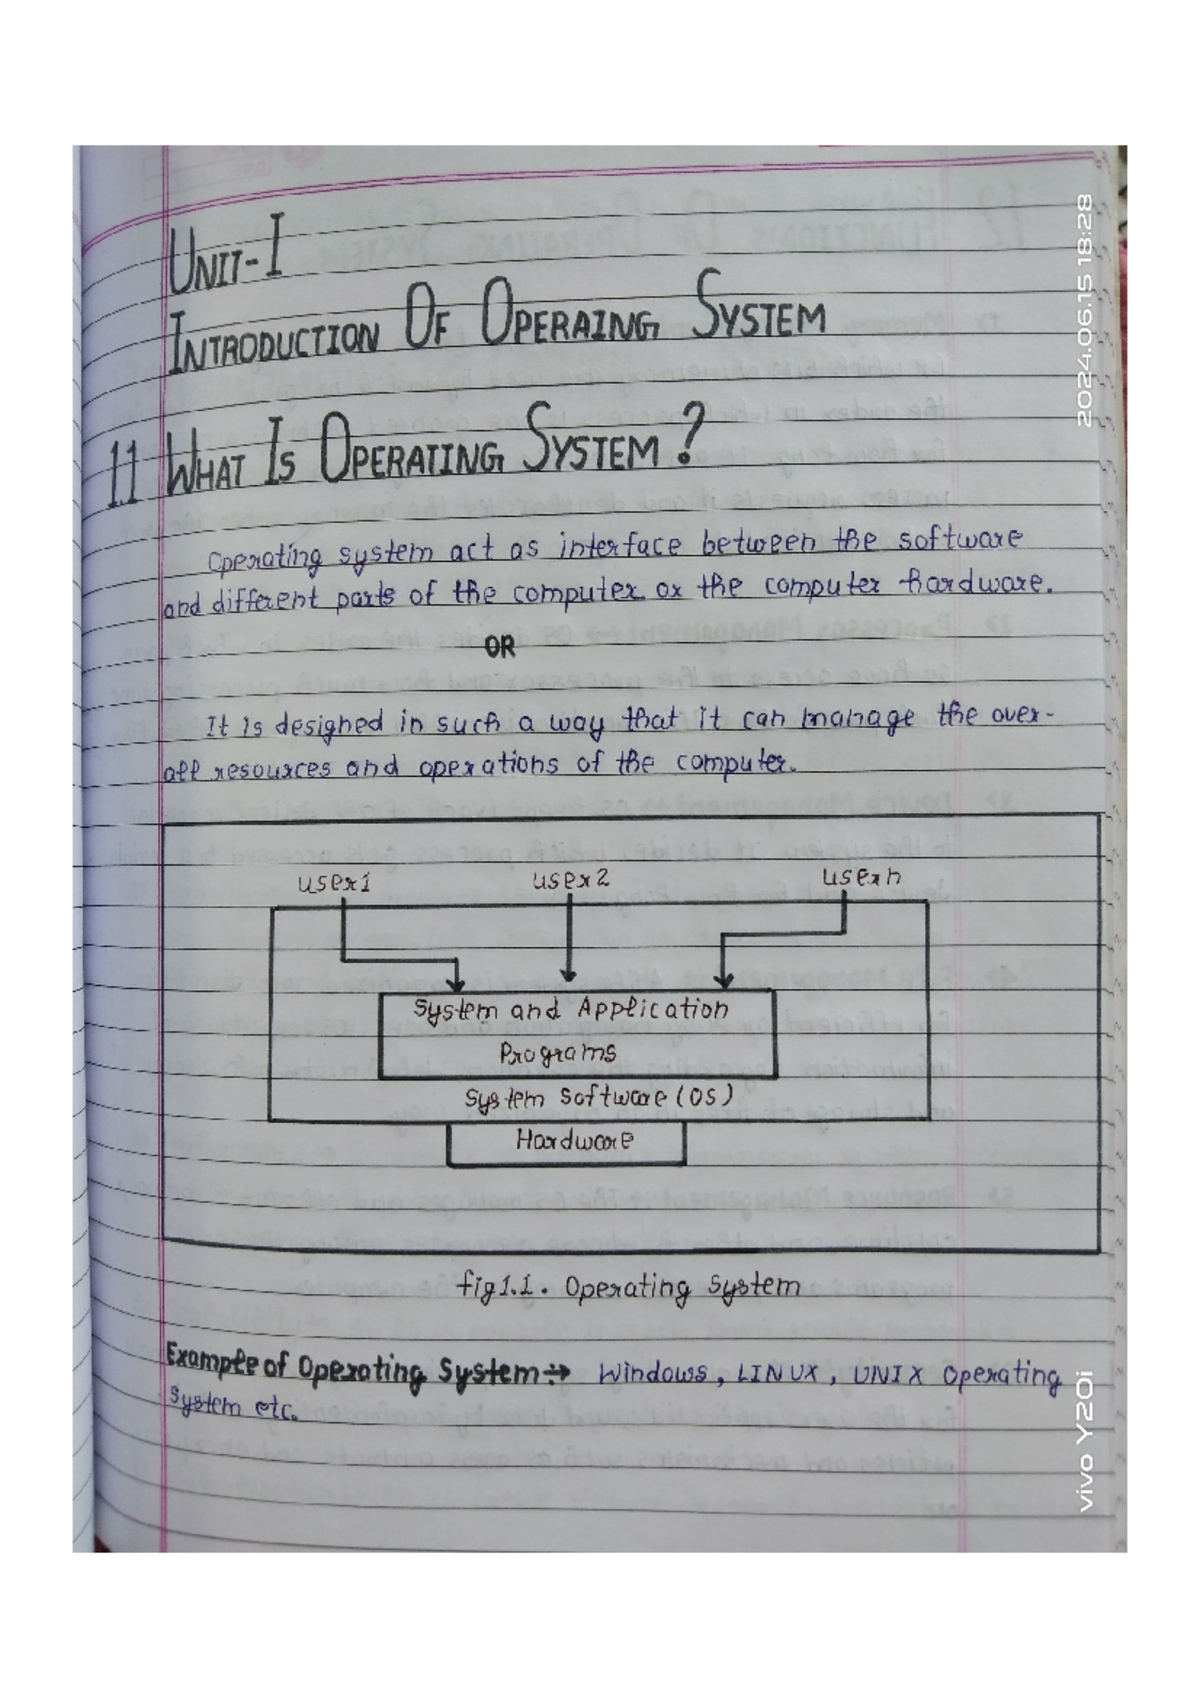 UNIT-I
INTRODUCTION OF OPERAING SYSTEM
1.1 WHAT IS OPERATING SYSTEM?
Operating system act as interface between the software
and different parts of the computer or the computer hardware.
OR
It is designed in such a way that it can manage the over-
all resources and operations of the computer.
user1 user2 usern
System and Application
Programs
System Software (OS)
Hardware
fig 1.1. Operating System
Example of Operating System:→ Windows, LINUX, UNIX Operating
System etc.
2024.06.15 18:28
vivo Y20i